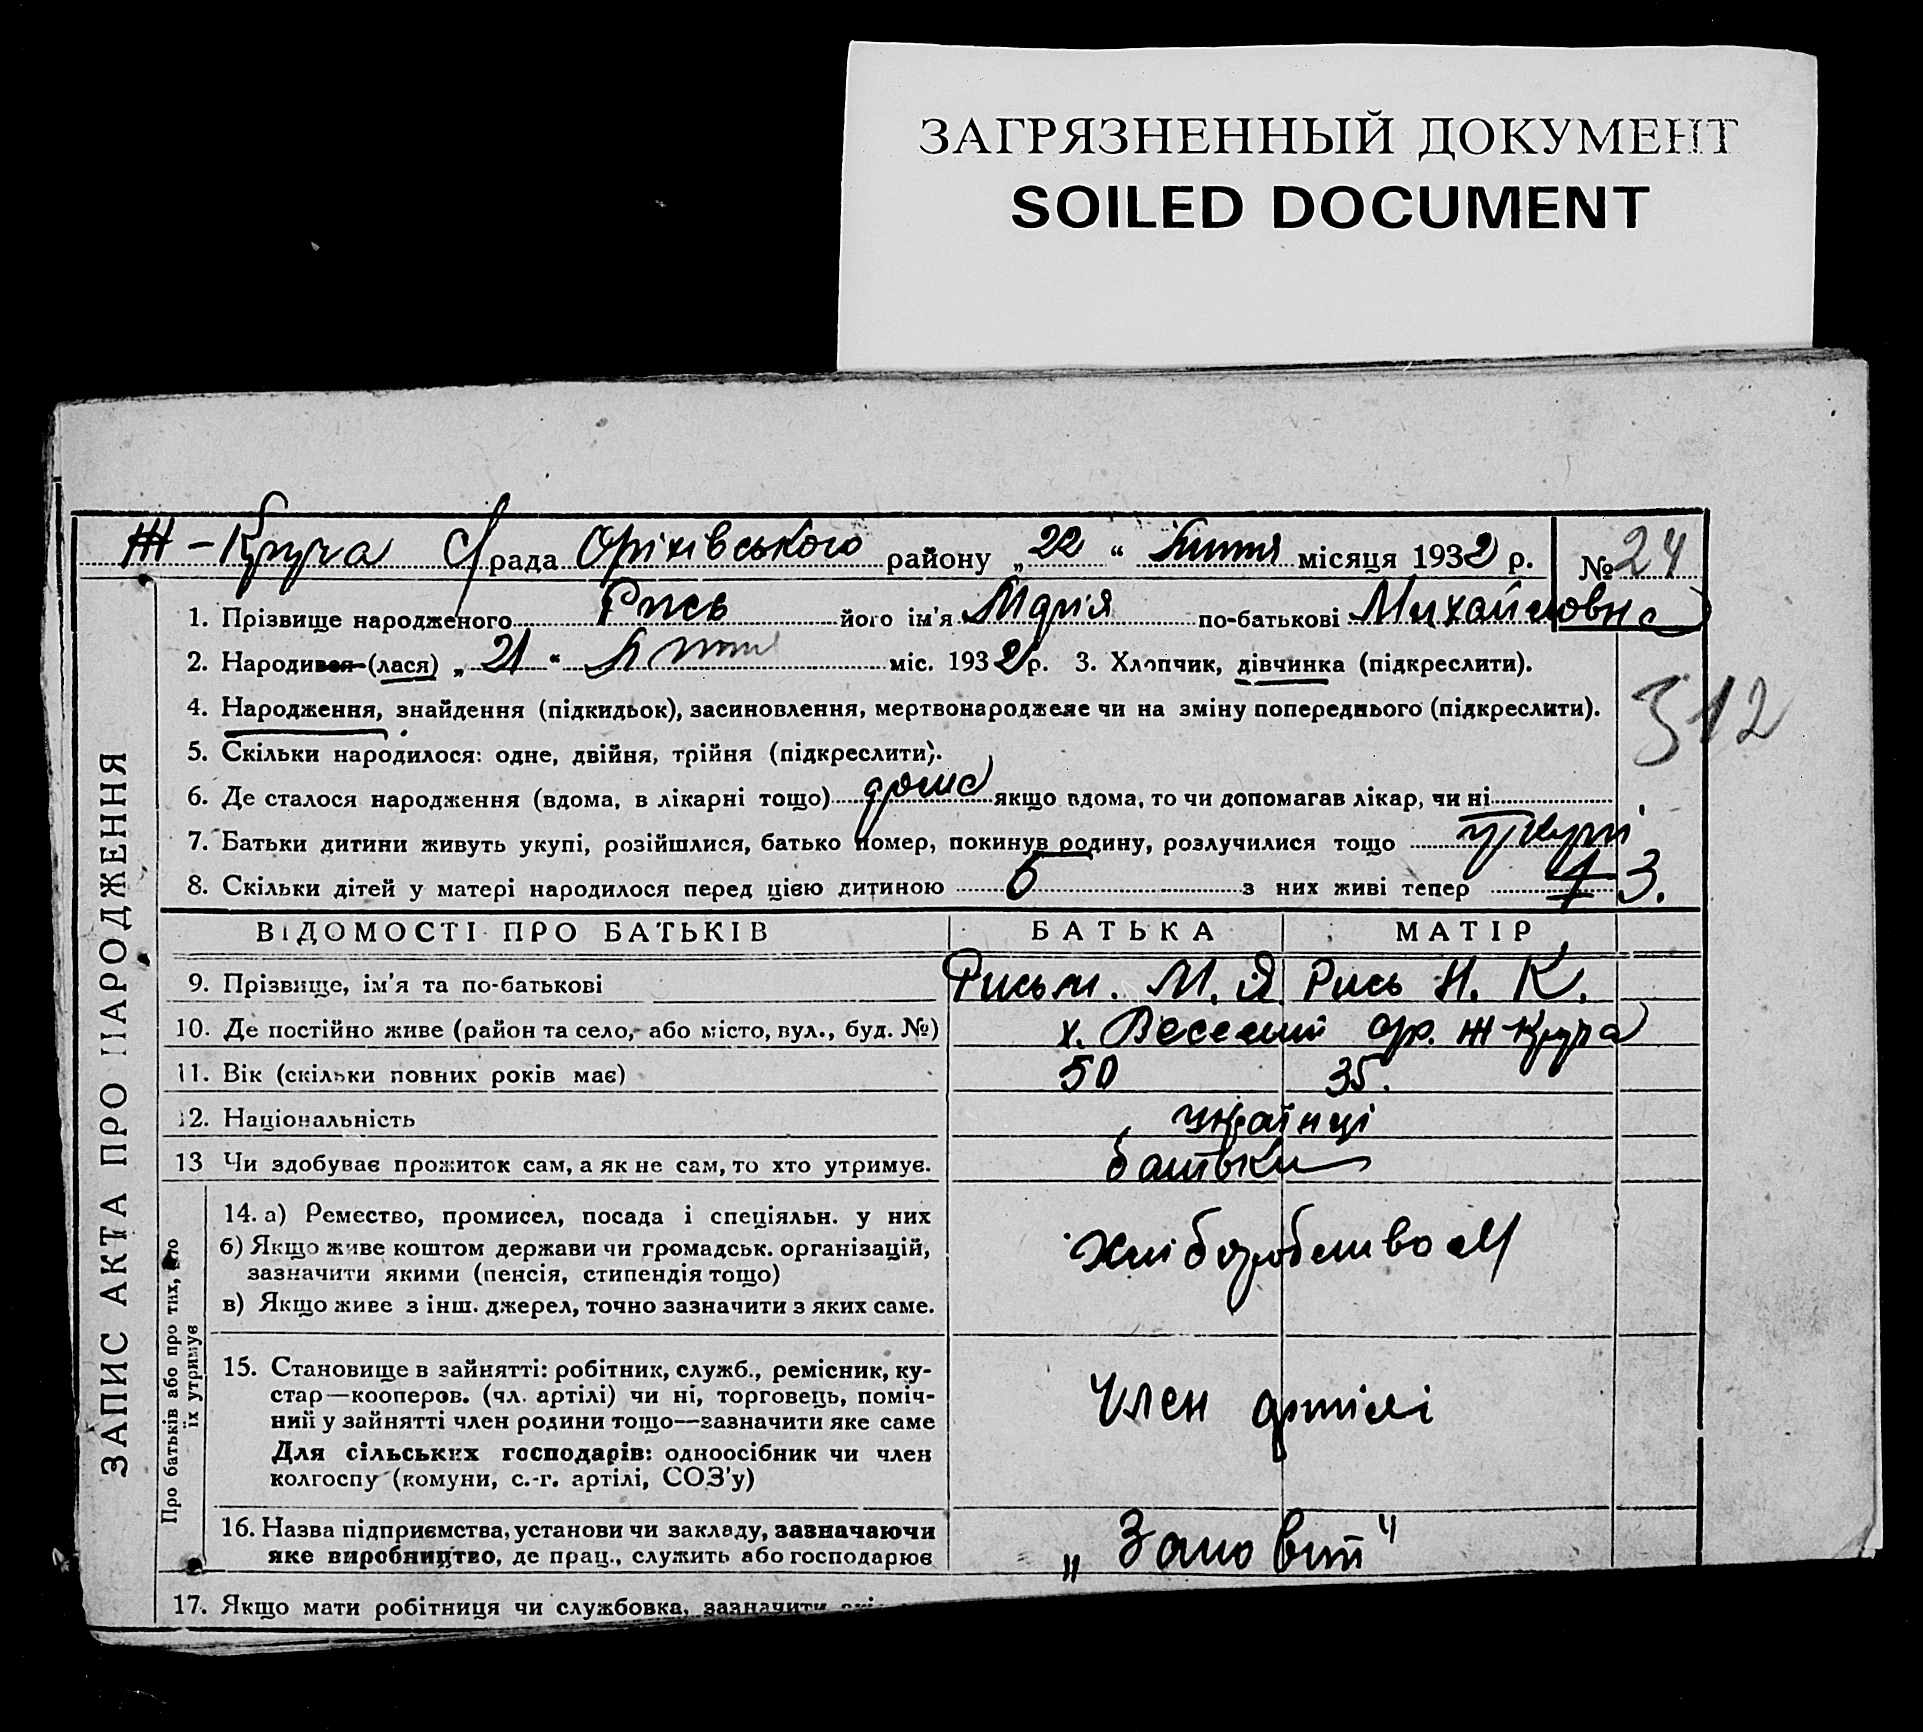 ЗАГРЯЗНЕННЫЙ ДОКУМЕНТ
SOILED DOCUMENT
Ж-Круча С/рада Оріхівського району „22“ Липня місяця 1932 р. № 24
1. Прізвище народженого Рись його ім'я Марія по-батькові Михайловна
2. Народився (лася) „21“ Липня міс. 1932 р. 3. Хлопчик, дівчинка (підкреслити).
312
4. Народження, знайдення (підкидьок), засиновлення, мертвонароджене чи на зміну попереднього (підкреслити).
5. Скільки народилося: одне, двійня, трійня (підкреслити).
6. Де сталося народження (вдома, в лікарні тощо) дома якщо вдома, то чи допомагав лікар, чи ні
7. Батьки дитини живуть укупі, розійшлися, батько помер, покинув родину, розлучилися тощо укупі
8. Скільки дітей у матері народилося перед цією дитиною 6 з них живі тепер 3.
ЗАПИС АКТА ПРО НАРОДЖЕННЯ
ВІДОМОСТІ ПРО БАТЬКІВ БАТЬКА МАТІР
9. Прізвище, ім'я та по-батькові Рись М. Я. Рись Н. К.
10. Де постійно живе (район та село, або місто, вул., буд. №) х. Веселий Ж-Круча
11. Вік (скільки повних років має) 50 35.
12. Національність українці
13 Чи здобуває прожиток сам, а як не сам, то хто утримує. батьки
Про батьків або про тих, хто їх утримує
14. а) Ремество, промисел, посада і спеціяльн. у них
б) Якщо живе коштом держави чи громадськ. організацій,
зазначити якими (пенсія, стипендія тощо)
в) Якщо живе з інш. джерел, точно зазначити з яких саме.
хліборобство
15. Становище в зайнятті: робітник, служб., ремісник, ку-
стар—кооперов. (чл. артілі) чи ні, торговець, поміч-
ний у зайнятті член родини тощо—зазначити яке саме
Для сільських господарів: одноосібник чи член
колгоспу (комуни, с.-г. артілі, СОЗ'у)
Член артілі
16. Назва підприємства, установи чи закладу, зазначаючи
яке виробництво, де прац., служить або господарює
„Заповіт“
17. Якщо мати робітниця чи службовка, зазначити